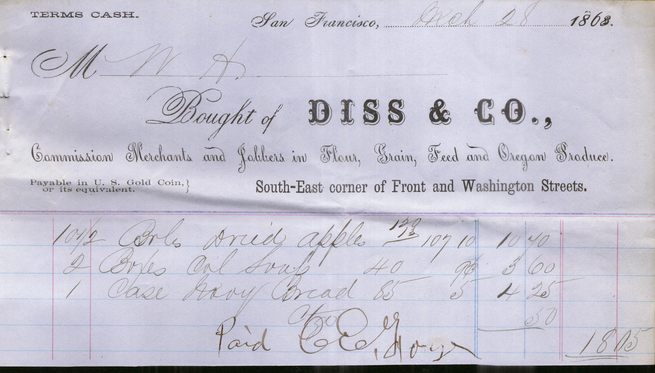 TERMS CASH.
San Francisco, Oct 28 1868.
M W H
Bought of DISS & CO.,
Commission Merchants and Jobbers in Flour, Grain, Feed and Oregon Produce.
Payable in U. S. Gold Coin, }
or its equivalent.
South-East corner of Front and Washington Streets.
Dried apples 107 10 10 70
2 Boxes Soap 40 90 3 60
1 Case Navy Bread 85 5 4 25
50
Paid 18 05